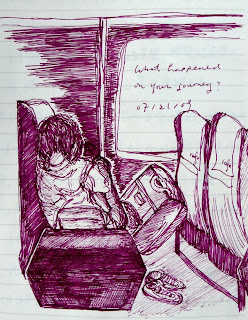 What happened
on your journey?
07/21/09